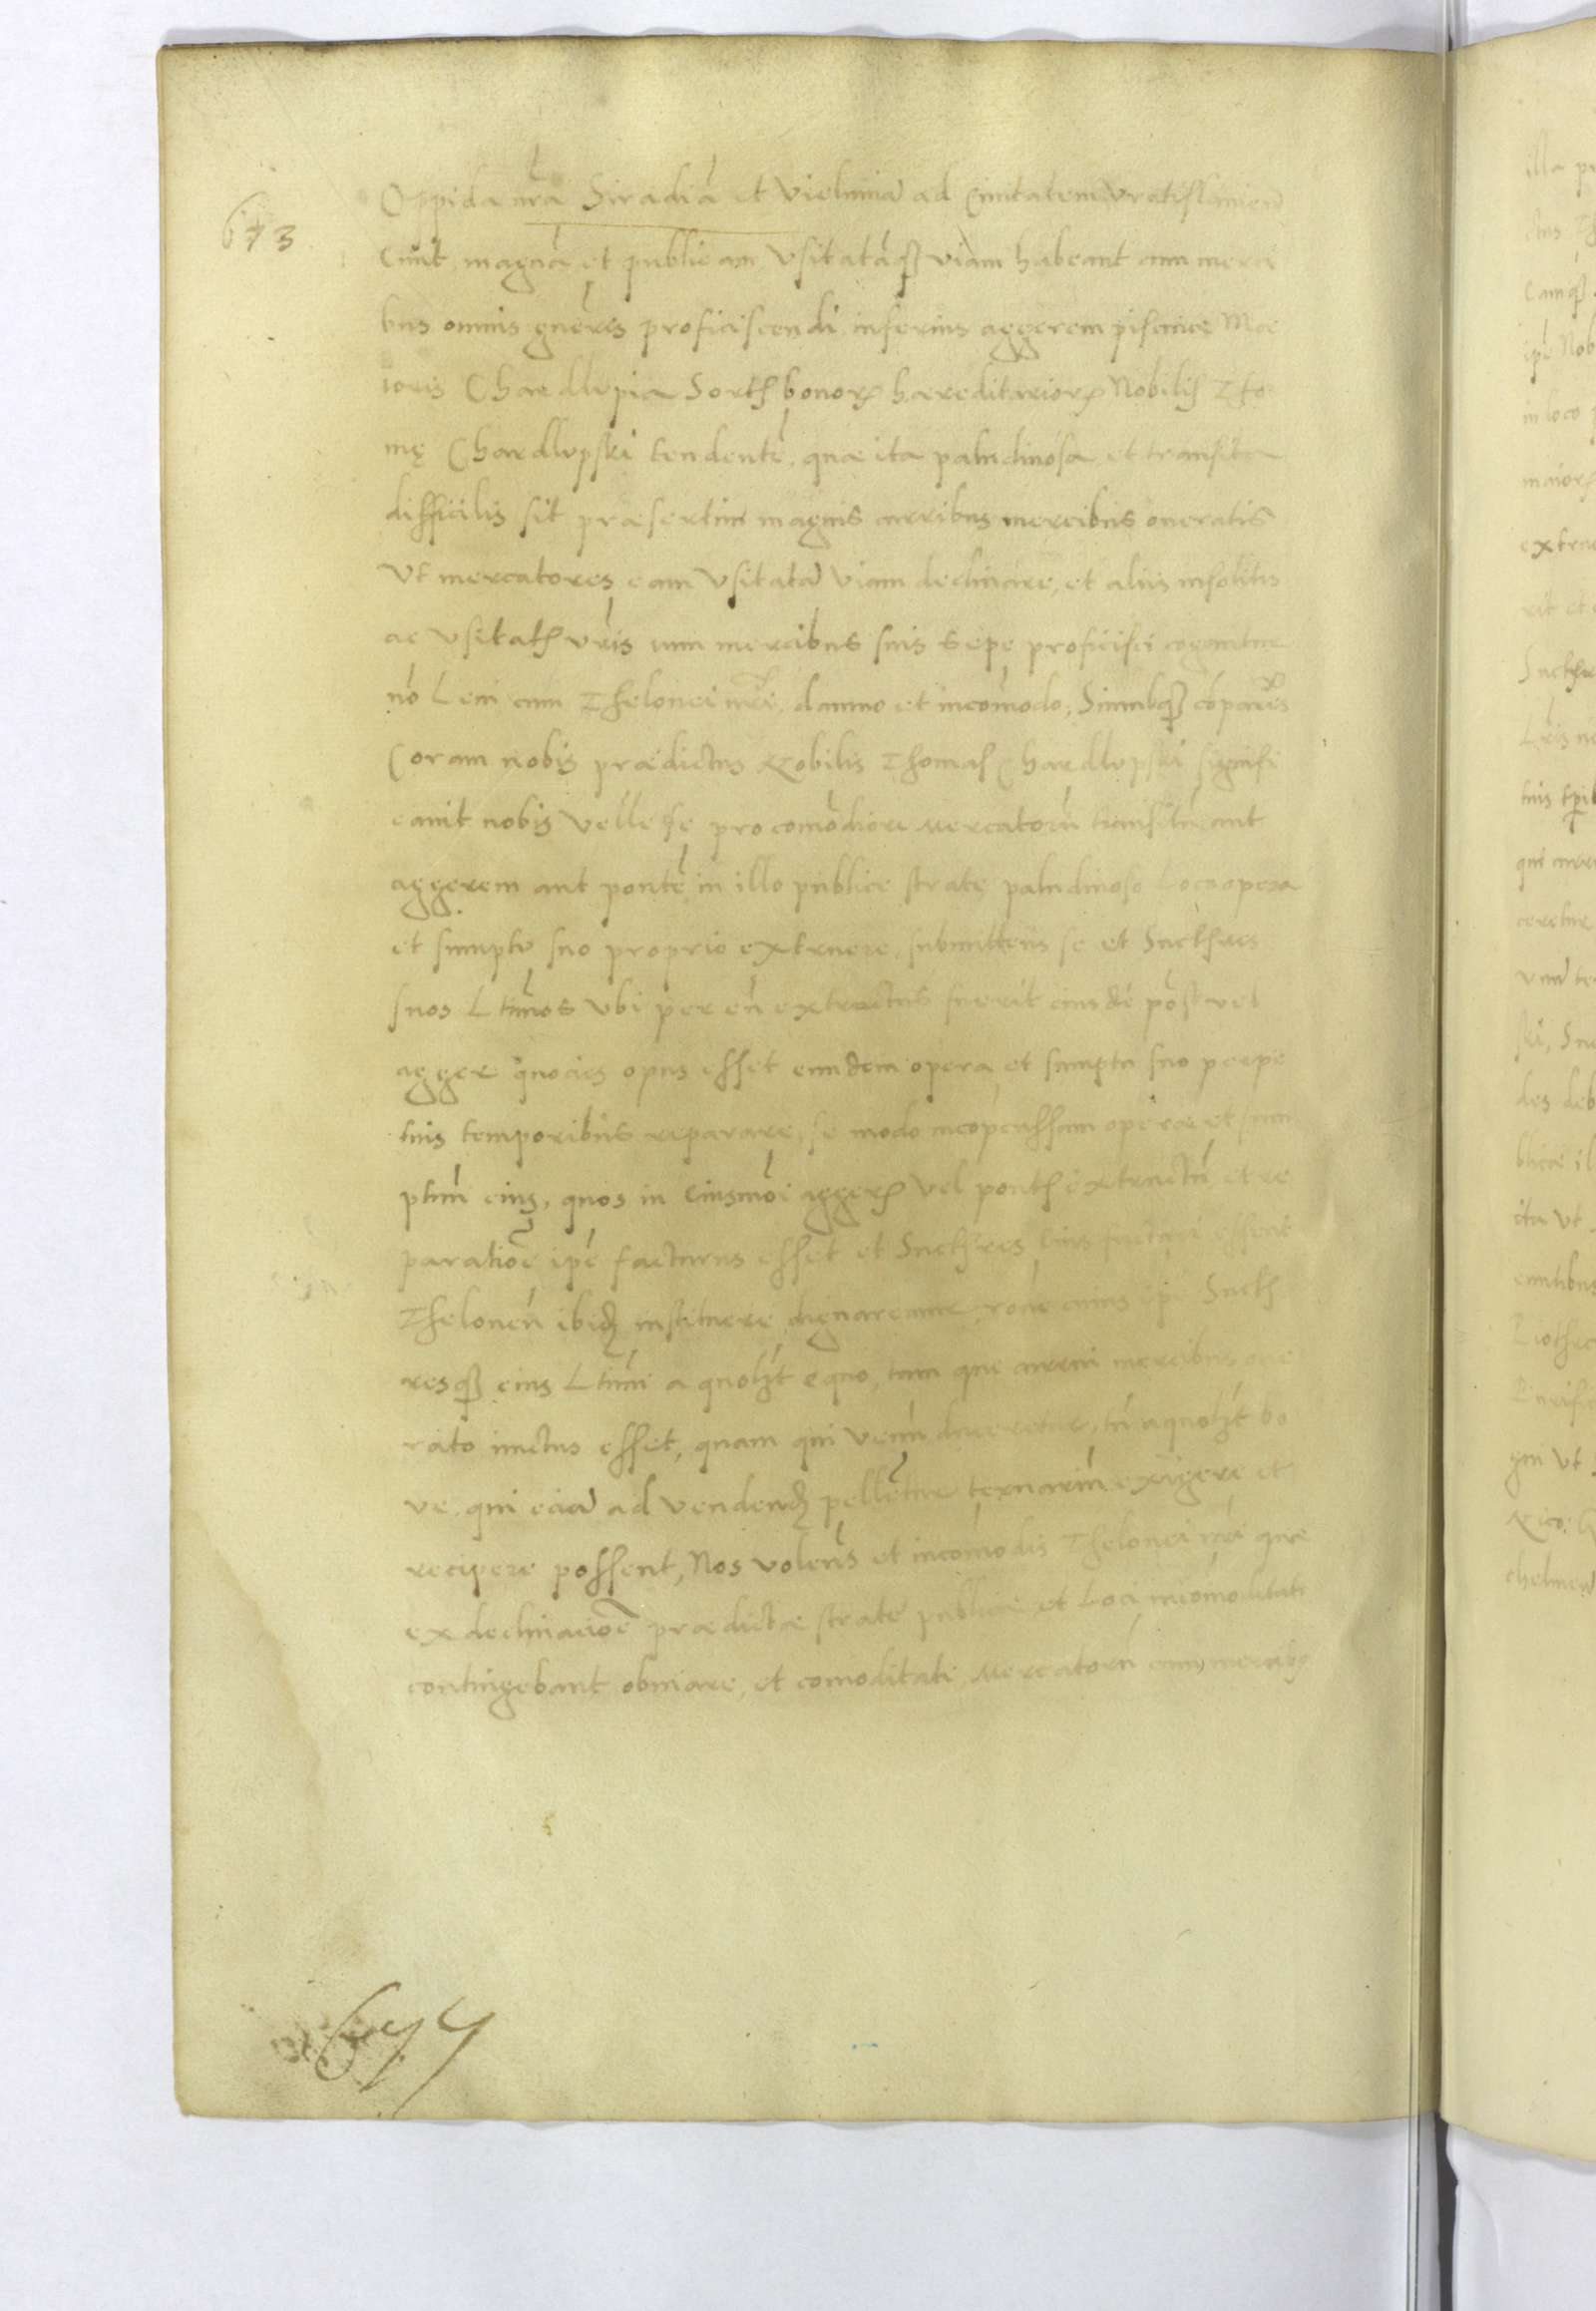 673
Oppida nr̃a Siradiã et Vielunia ad Ciuitatem Vratislauien̄
Cuut magnã et publicam Vsitatãqȝ viam habeant cum merci
bus omnis gñeris proficiscendi inferius aggerem piscine Ma
ioris Chardlupia Sortȝ bonorȝ hæreditariorȝ Nobilis Tho
mę Chardlupski tendentẽ, quæ ita paludinosa et transitu
difficilis sit præsertim magnis curribus mercibus oneratis
Vt mercatores eam Vsitatã viam declinare, et aliis insolitis
ac vsitatȝ viis cum mercibus suis sępe proficisci cogantur
nõ leui cum Thelonei nr̃i damno et incõmodo, Simulqȝ cõparẽs
Coram nobis prædictus Nobilis Thomas Chardlupski signifi
cauit nobis Velle se pro comõdiori Mercatorũ transitu aut
aggerem aut pontẽ in illo publice strate paludinoso Loco opera
et sumptu suo proprio extruere, submittens se et Sucṡres
suos Ltimos Vbi per eũ extructus fuerit eiusdẽ põs vel
agger quocies opus esset eundem opera et sumptu suo perpe
tuis temporibus reparare, se modo incõpenssam operæ et sum
ptuũ eius, quos in eiusmõi aggerȝ vel pontȝ extructũ et re
paratiõe ipẽ facturus esset et Sucṡres eius facturi essent
Theloneũ ibidȝ instituere dignaremur, rõne cuius ipẽ Sucṡ
resqȝ eius Ltimi a quolȝt equo, tam qui currui mercibus one
rato iunctus esset, quam qui venũ duceretur, tũ a quolȝt bo
ve qui eciã ad vendendȝ pelletur ternariũ exigere et
recipere possent, Nos volentẽs et incõmodis Thelonei nr̃i quæ
ex declinaciõe prædictæ strate publice et Loci incõmoditate
contingebant obuiare, et comoditati Mercatorũ cum merciȝ
677